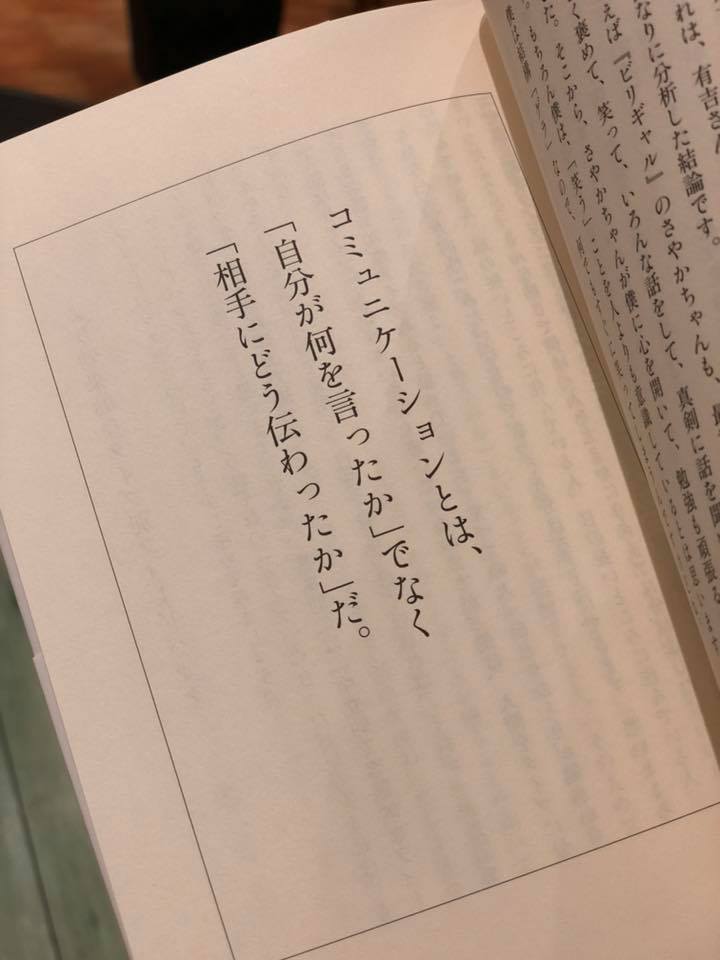 れは、有吉さん
なりに分析した結論です。
えば『ビリギャル』のさやかちゃんも、
く褒めて、笑って、いろんな話をして、真剣に話を聞
た。そこから、さやかちゃんが僕に心を開いて、勉強も頑張る
。もちろん僕は、「笑う」ことを人よりも意識しているとは思います
僕は結構「ゲラ」なので、
コミュニケーションとは、
「自分が何を言ったか」でなく
「相手にどう伝わったか」だ。